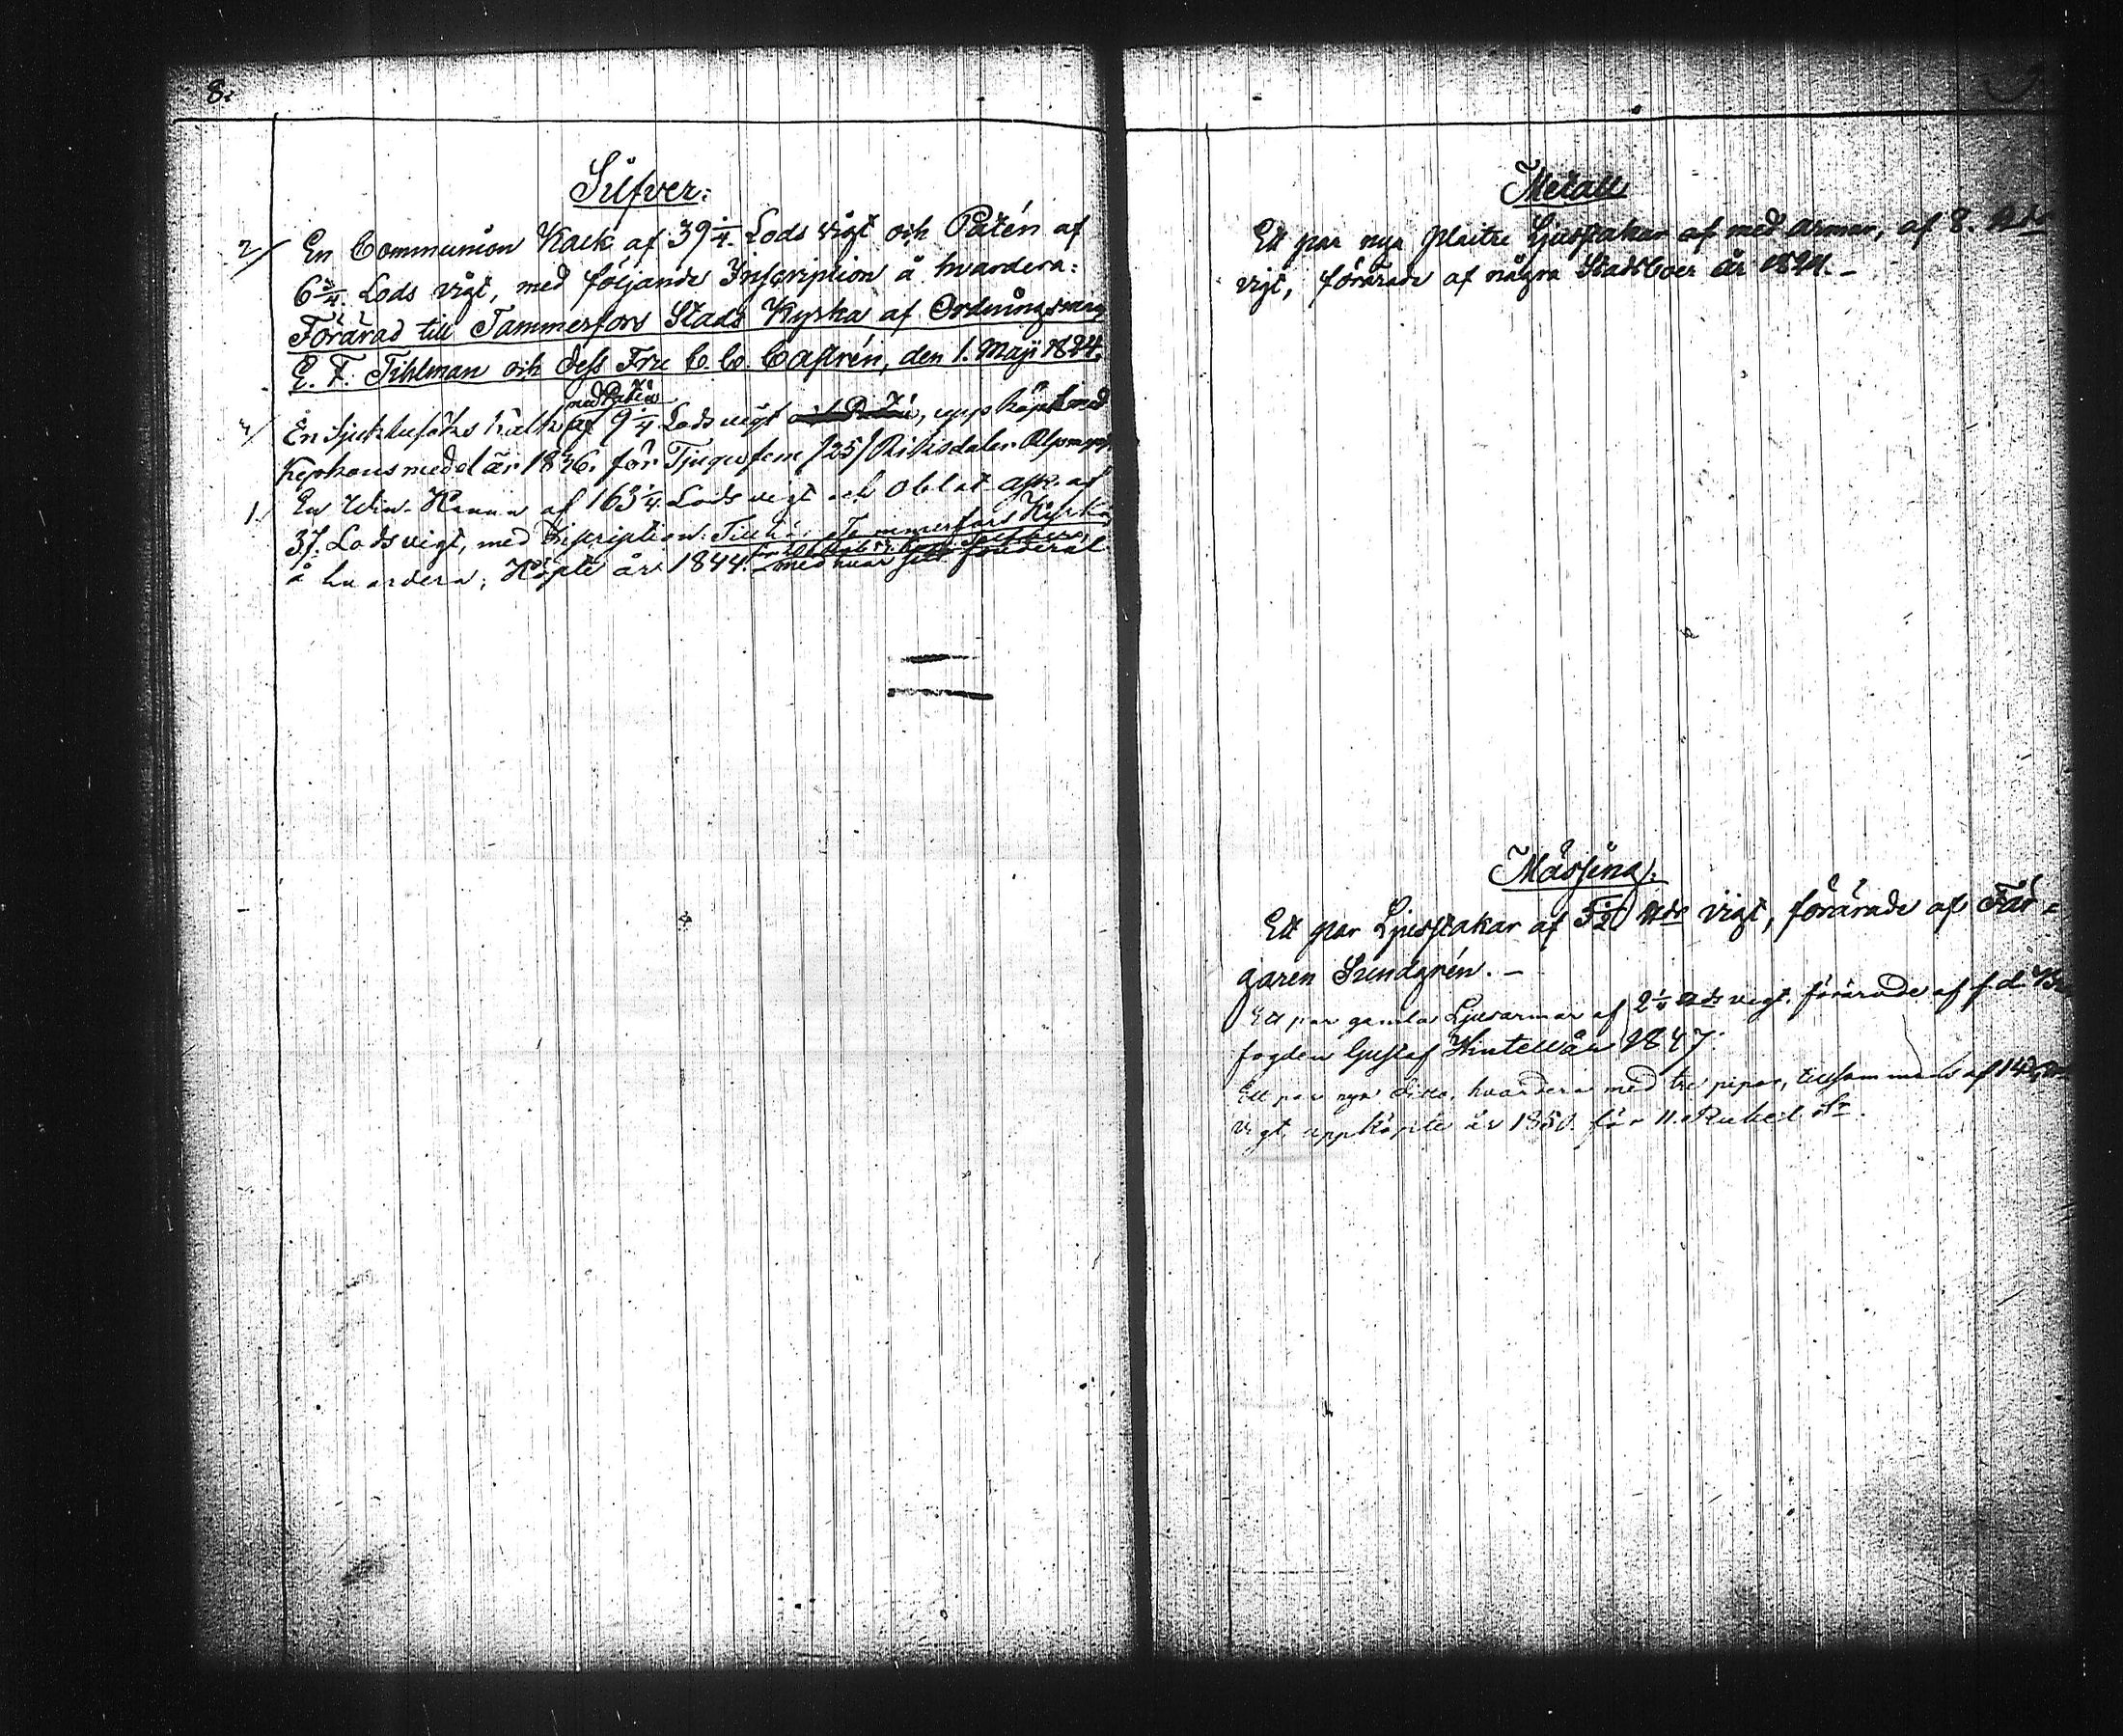 8.
Silfver:
2/ En Communion Kalk af 39 1/4. Lods vigt och Patén af
6 3/4. Lods vigt, med följande Inscription å hvardera:
Förärad till Tammerfors Stads Kyrka af Ordningsman
E. F. Tihlman och dess Fru C. C. Castrén, den 1. Maji 1824.
med Patén
En Sjukbesöks Kalk af 9 1/4 Lods vigt, uppköpt med
Kyrkans medel år 1836. för Tjugufem /25/ Riksdaler
1. En Win-Kanna af 163 1/4. Lods vigt och Oblat-ask af
37. Lods vigt, med Inscription: Tammerfors Kyrka
å hvardera; Köpte år 1844. med hvar sitt fouderal
Metall
Ett par nya Ljusstakar af med Armar, af 8.
vigt, förärade af några Stadsboer år
Mässing:
Ett par Ljusstakar af vigt, förärade af Fär=
garen Sundgrén. –
Ett par gamla Ljusarmar af vigt. förärade af f. d.
fogden Gustaf år 1847.
Ett par nya ditto, hvardera med tre pipor, tillsammans af
vigt, uppköpte år 1850. för 11. Rubel Sr.